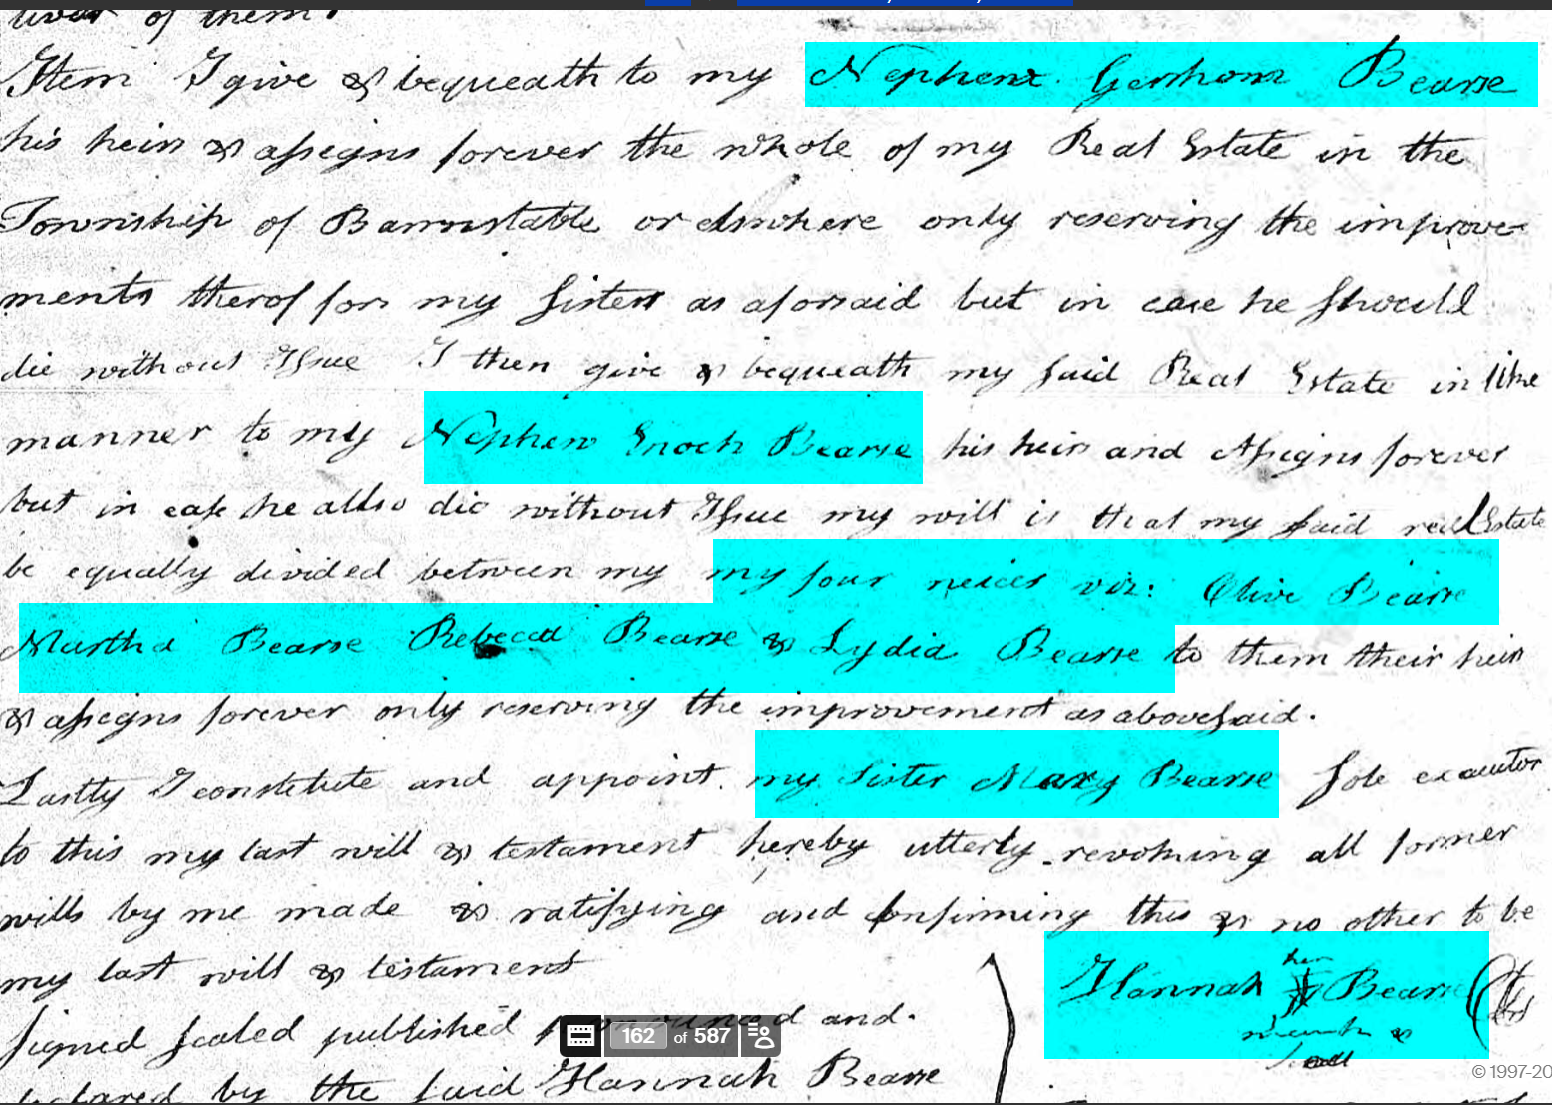 liver of them.
Item I give & bequeath to my Nephew Gershom Bearse
his heirs & assigns forever the whole of my Real Estate in the
Township of Barnstable or elswhere only reserving the improve-
ments therof for my Sisters as aforsaid but in case he should
die without Issue I then give & bequeath my said Real Estate in like
manner to my Nephew Enoch Bearse his heirs and Assigns forever
but in case he allso die without Issue my will is that my said real Estate
be equally divided between my my four neices viz: Olive Bearse
Martha Bearse Rebecca Bearse & Lydia Bearse to them their heirs
& assigns forever only reserving the improvement as abovesaid.
Lastly I constitute and appoint my Sister Mary Bearse sole executor
to this my last will & testament hereby utterly revoking all former
wills by me made & ratifying and confirming this & no other to be
my last will & testament
her
Hannah Bearse
mark &
seal
signed sealed published pronounced and
162 of 587
declared by the said Hannah Bearse
© 1997-20